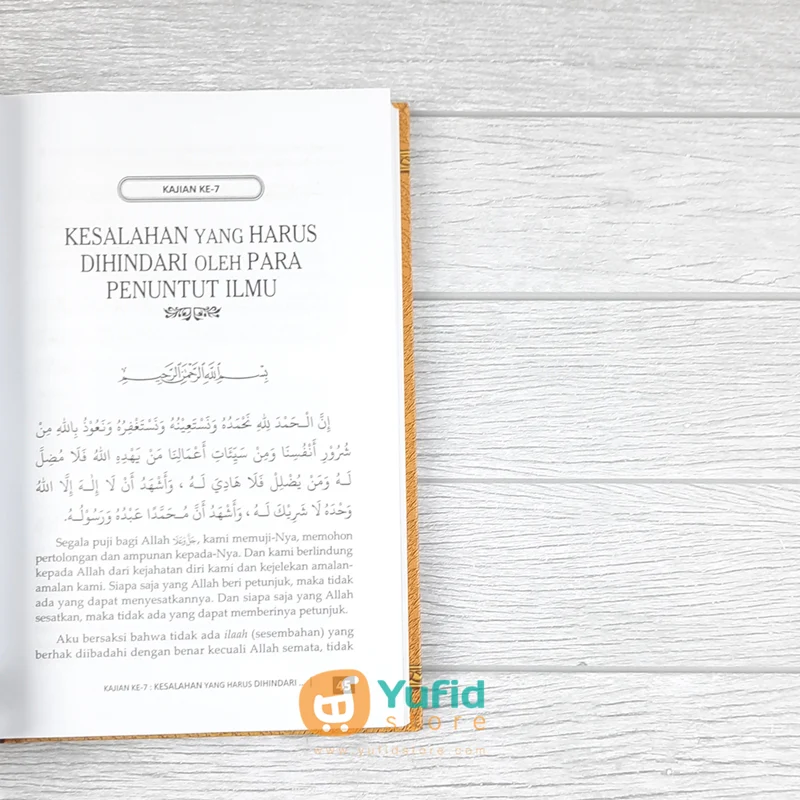 KAJIAN KE-7
KESALAHAN YANG HARUS
DIHINDARI OLEH PARA
PENUNTUT ILMU
بِسْمِ اللَّهِ الرَّحْمَٰنِ الرَّحِيمِ
إِنَّ الْـحَمْدَ لِلّٰهِ نَحْمَدُهُ وَنَسْتَعِيْنُهُ وَنَسْتَغْفِرُهُ وَنَعُوْذُ بِاللهِ مِنْ
شُرُوْرِ أَنْفُسِنَا وَمِنْ سَيِّئَاتِ أَعْمَالِنَا مَنْ يَهْدِهِ اللهُ فَلَا مُضِلَّ
لَـهُ وَمَنْ يُضْلِلْ فَلَا هَادِيَ لَـهُ ، وَأَشْهَدُ أَنْ لَا إِلٰـهَ إِلَّا اللهُ
وَحْدَهُ لَا شَرِيْكَ لَـهُ ، وَأَشْهَدُ أَنَّ مُـحَمَّدًا عَبْدُهُ وَرَسُوْلُـهُ.
Segala puji bagi Allah, kami memuji-Nya, memohon
pertolongan dan ampunan kepada-Nya. Dan kami berlindung
kepada Allah dari kejahatan diri kami dan kejelekan amalan-
amalan kami. Siapa saja yang Allah beri petunjuk, maka tidak
ada yang dapat menyesatkannya. Dan siapa saja yang Allah
sesatkan, maka tidak ada yang dapat memberinya petunjuk.
Aku bersaksi bahwa tidak ada ilaah (sesembahan) yang
berhak diibadahi dengan benar kecuali Allah semata, tidak
KAJIAN KE-7 : KESALAHAN YANG HARUS DIHINDARI ... | 45
Yufid
store
www.yufidstore.com